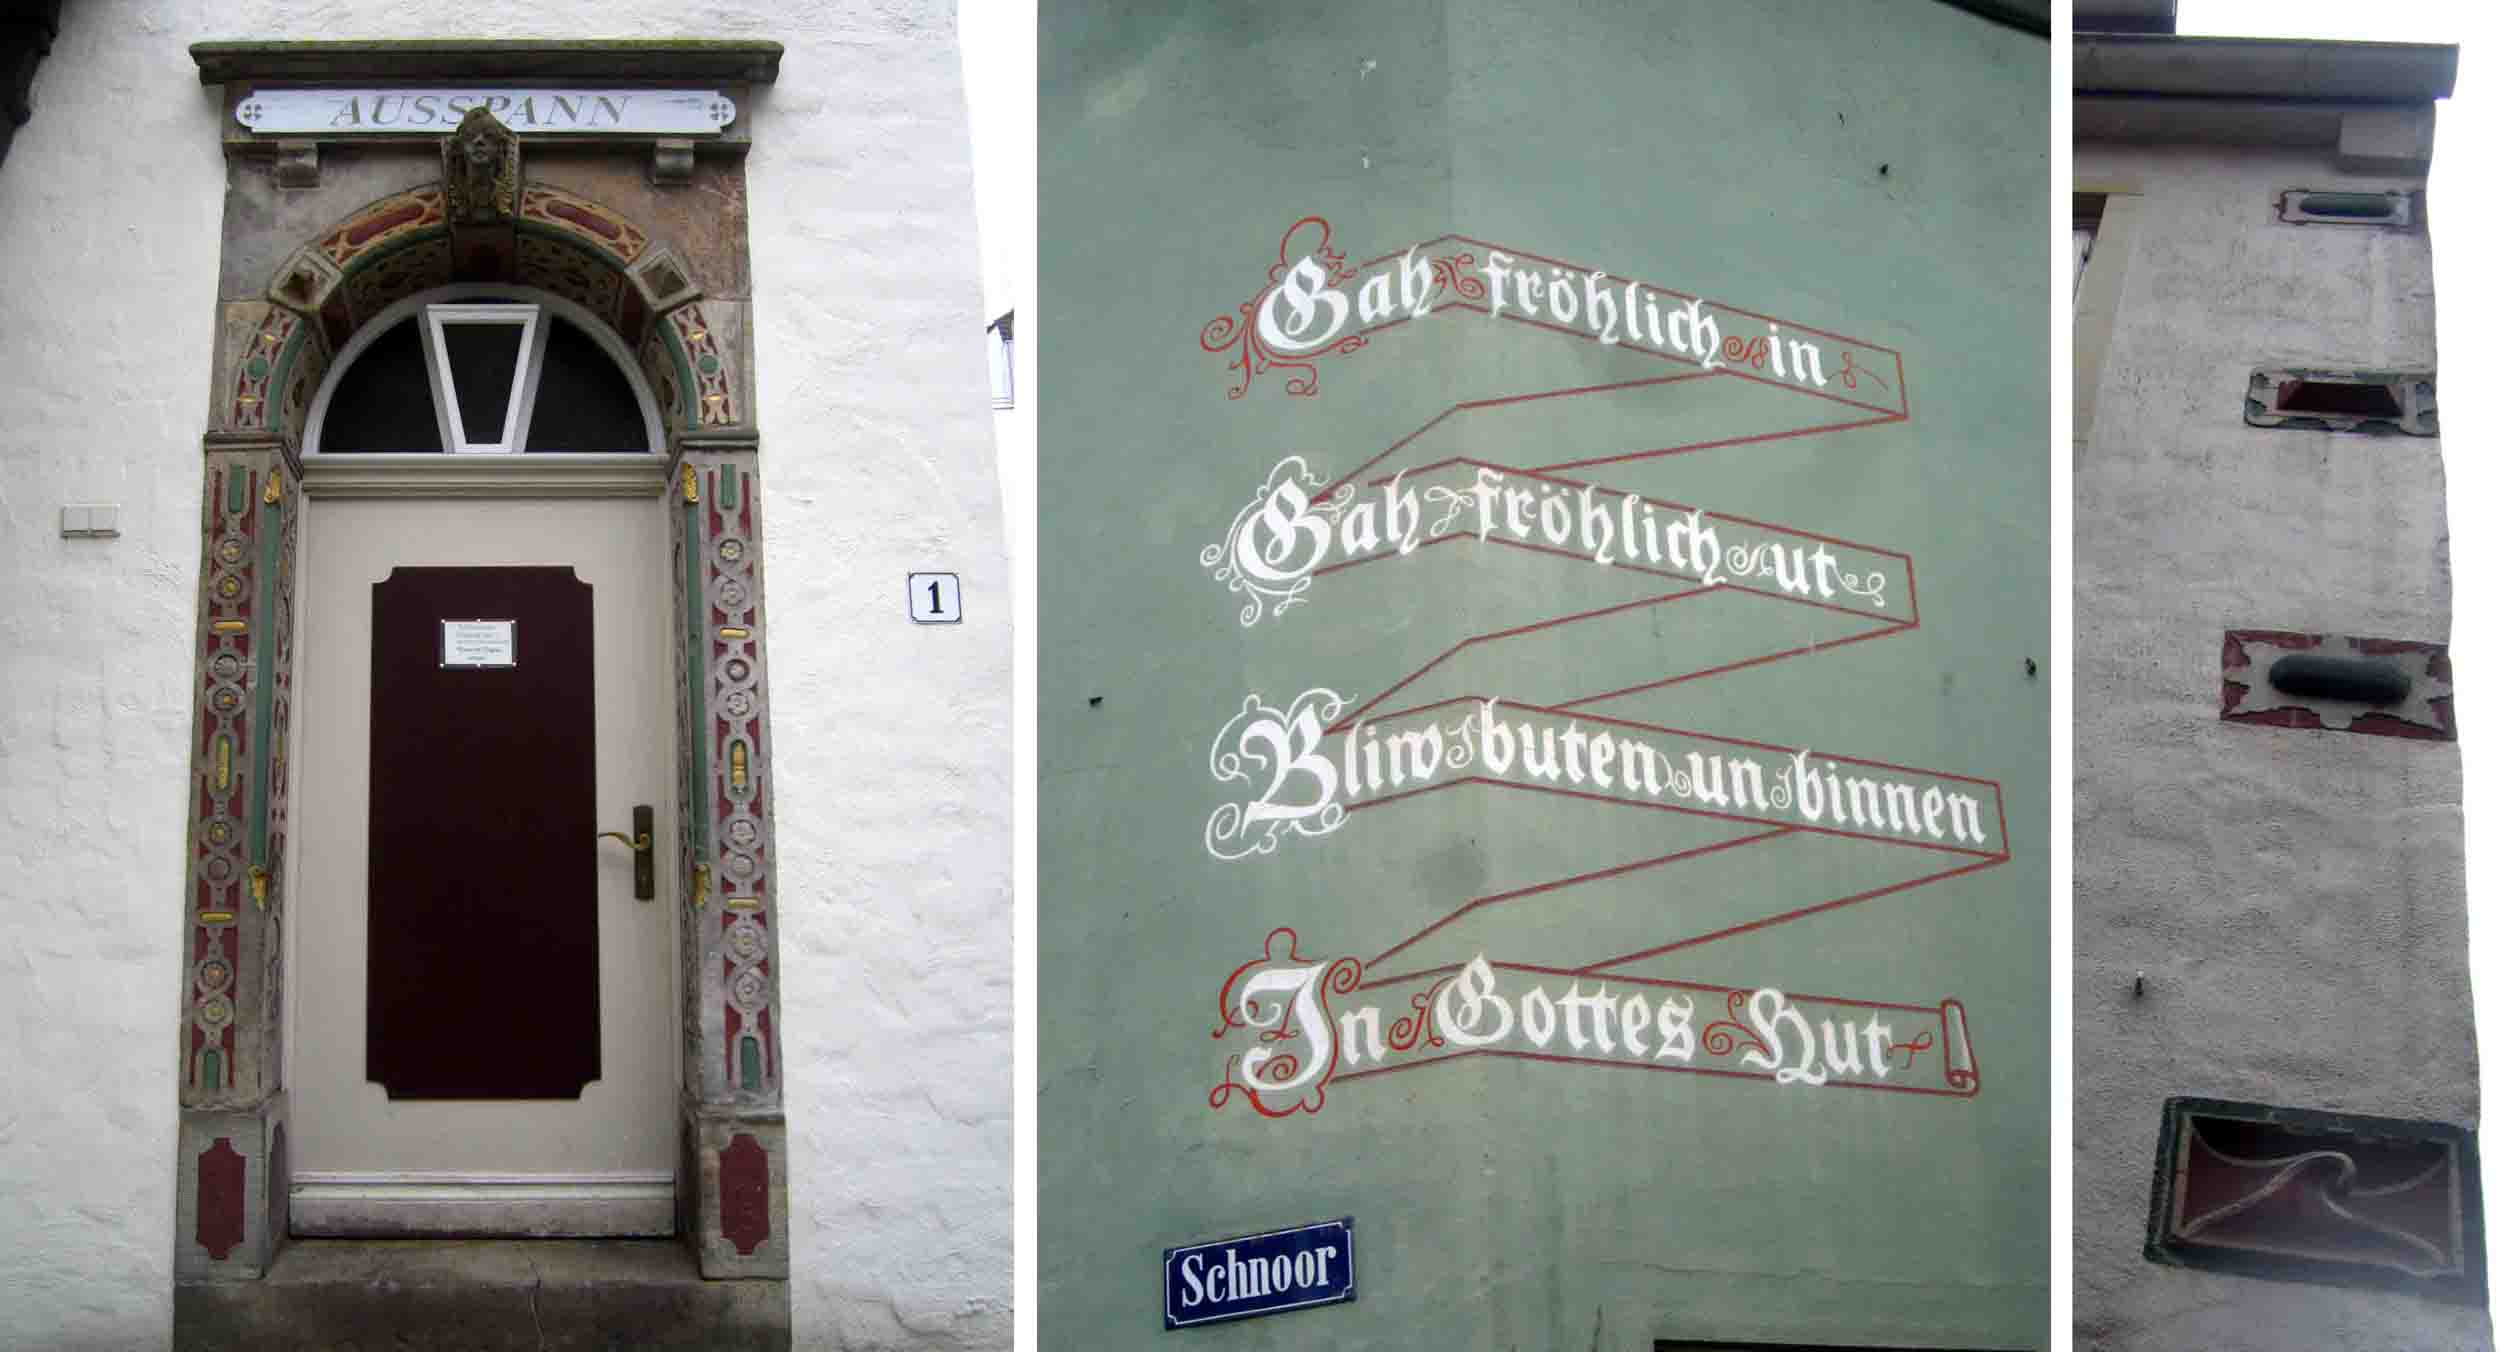 AUSSPANN
1
Gah fröhlich in
Gah fröhlich ut
Bliw buten un binnen
In Gottes Hut
Schnoor